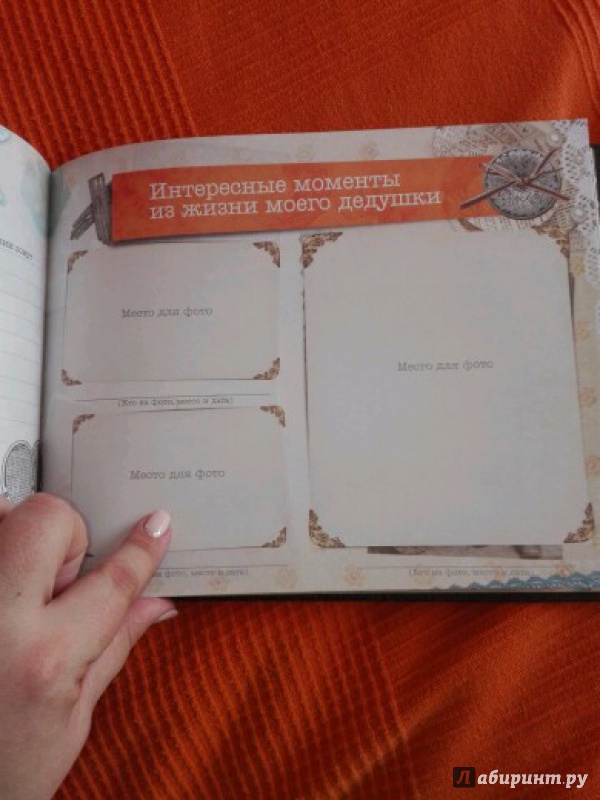 Интересные моменты
из жизни моего дедушки
Место для фото
(Кто на фото, место и дата)
Место для фото
на фото, место и дата)
Место для фото
(Кто на фото, место и дата)
Лабиринт.ру